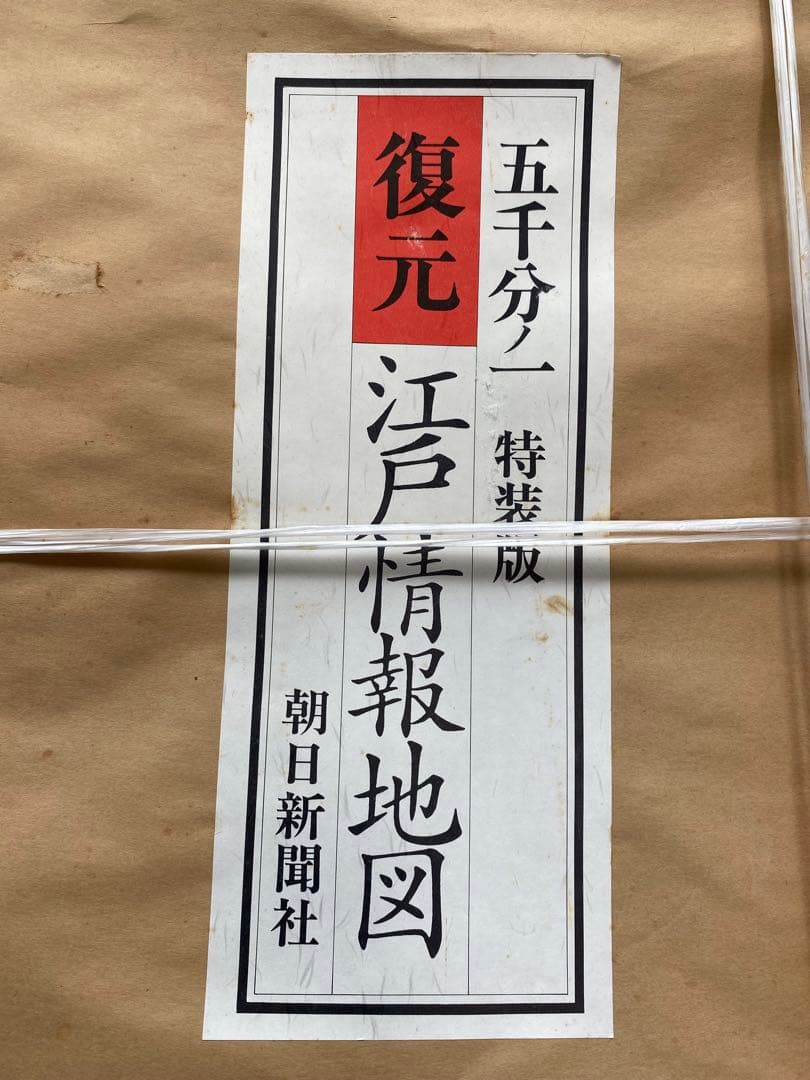 五千分ノ一 特装版
復元 江戸情報地図
朝日新聞社